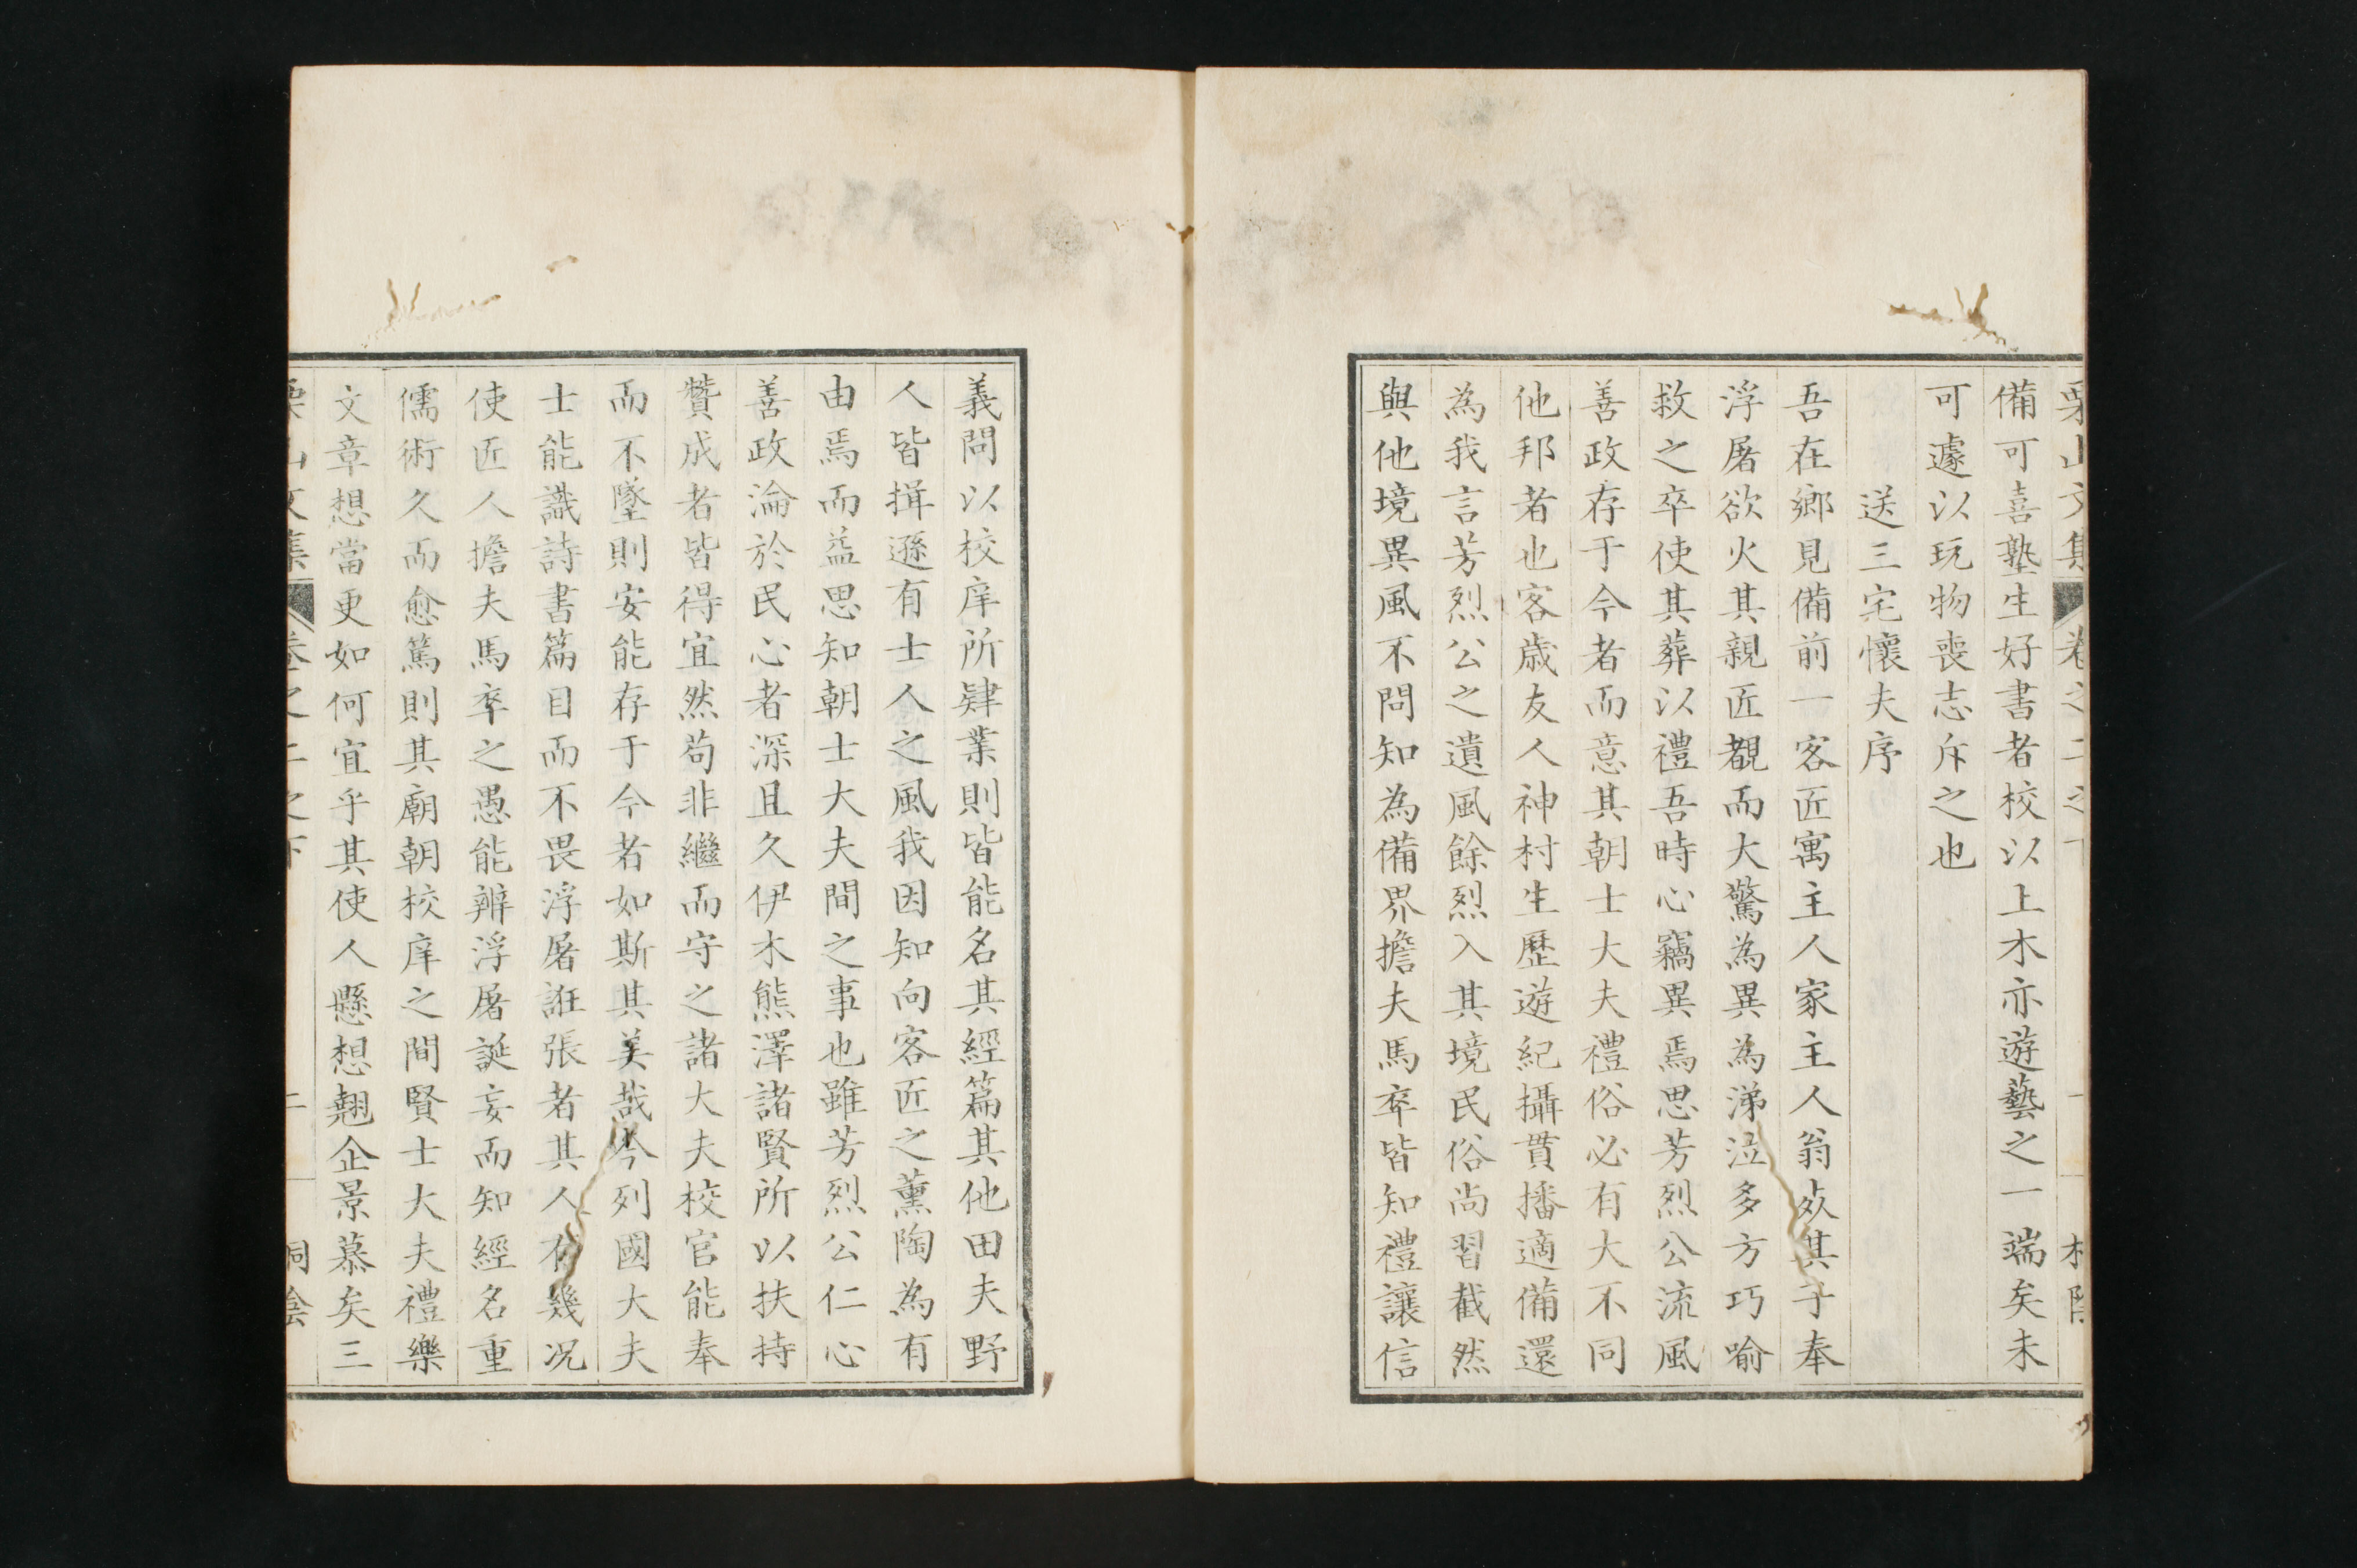 栗山文集 卷之二之下
備可喜塾生好書者校以上木亦遊藝之一端矣未
可遽以玩物喪志斥之也
送三宅懷夫序
吾在鄉見備前一客匠寓主人家主人翁歿其子奉
浮屠欲火其親匠覩而大驚為異為涕泣多方巧喻
救之卒使其葬以禮吾時心竊異焉思芳烈公流風
善政存于今者而意其朝士大夫禮俗必有大不同
他邦者也客歲友人神村生歷遊紀攝貫播適備還
為我言芳烈公之遺風餘烈入其境民俗尚習截然
與他境異風不問知為備界擔夫馬卒皆知禮讓信
義問以校庠所肄業則皆能名其經篇其他田夫野
人皆揖遜有士人之風我因知向客匠之薰陶為有
由焉而益思知朝士大夫間之事也雖芳烈公仁心
善政淪於民心者深且久伊木熊澤諸賢所以扶持
贊成者皆得宜然苟非繼而守之諸大夫校官能奉
而不墜則安能存于今者如斯其美哉今列國大夫
士能識詩書篇目而不畏浮屠誑張者其人有幾况
使匠人擔夫馬卒之愚能辨浮屠誕妄而知經名重
儒術久而愈篤則其廟朝校庠之間賢士大夫禮樂
文章想當更如何宜乎其使人懸想翹企景慕矣三
栗山文集 卷之二之下 二 桐陰